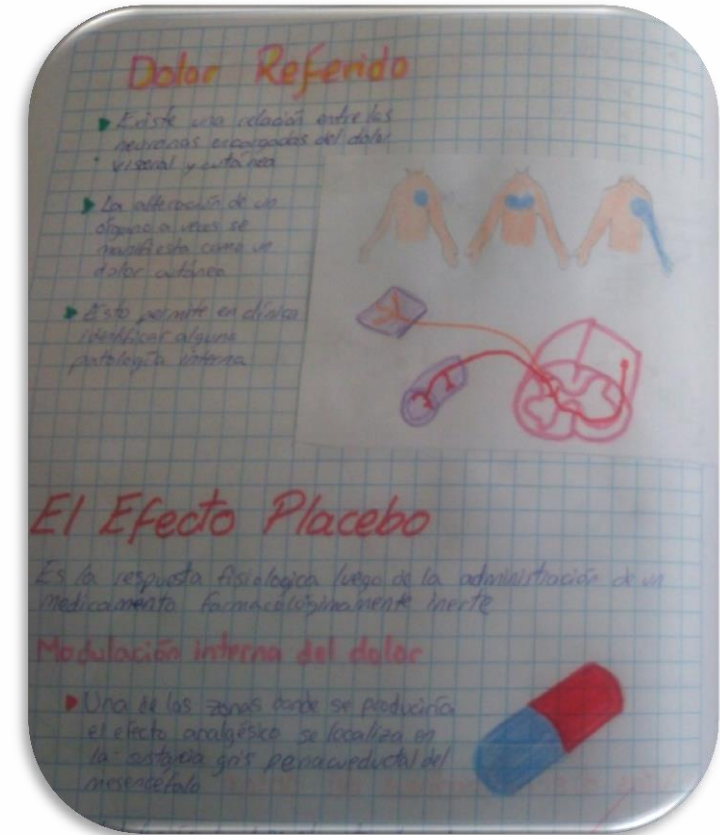 Dolor Referido
Existe una relación entre las
neuronas encargadas del dolor
visceral y cutánea
La alteración de un
órgano a veces se
manifiesta como un
dolor cutáneo
Esto permite en clínica
identificar alguna
patología interna
El Efecto Placebo
Es la respuesta fisiologica luego de la administración de un
medicamento farmacológinamente inerte
Modulación interna del dolor
Una de las zonas donde se produciría
el efecto analgésico se localiza en
la sustancia gris periacueductal del
mesencéfalo